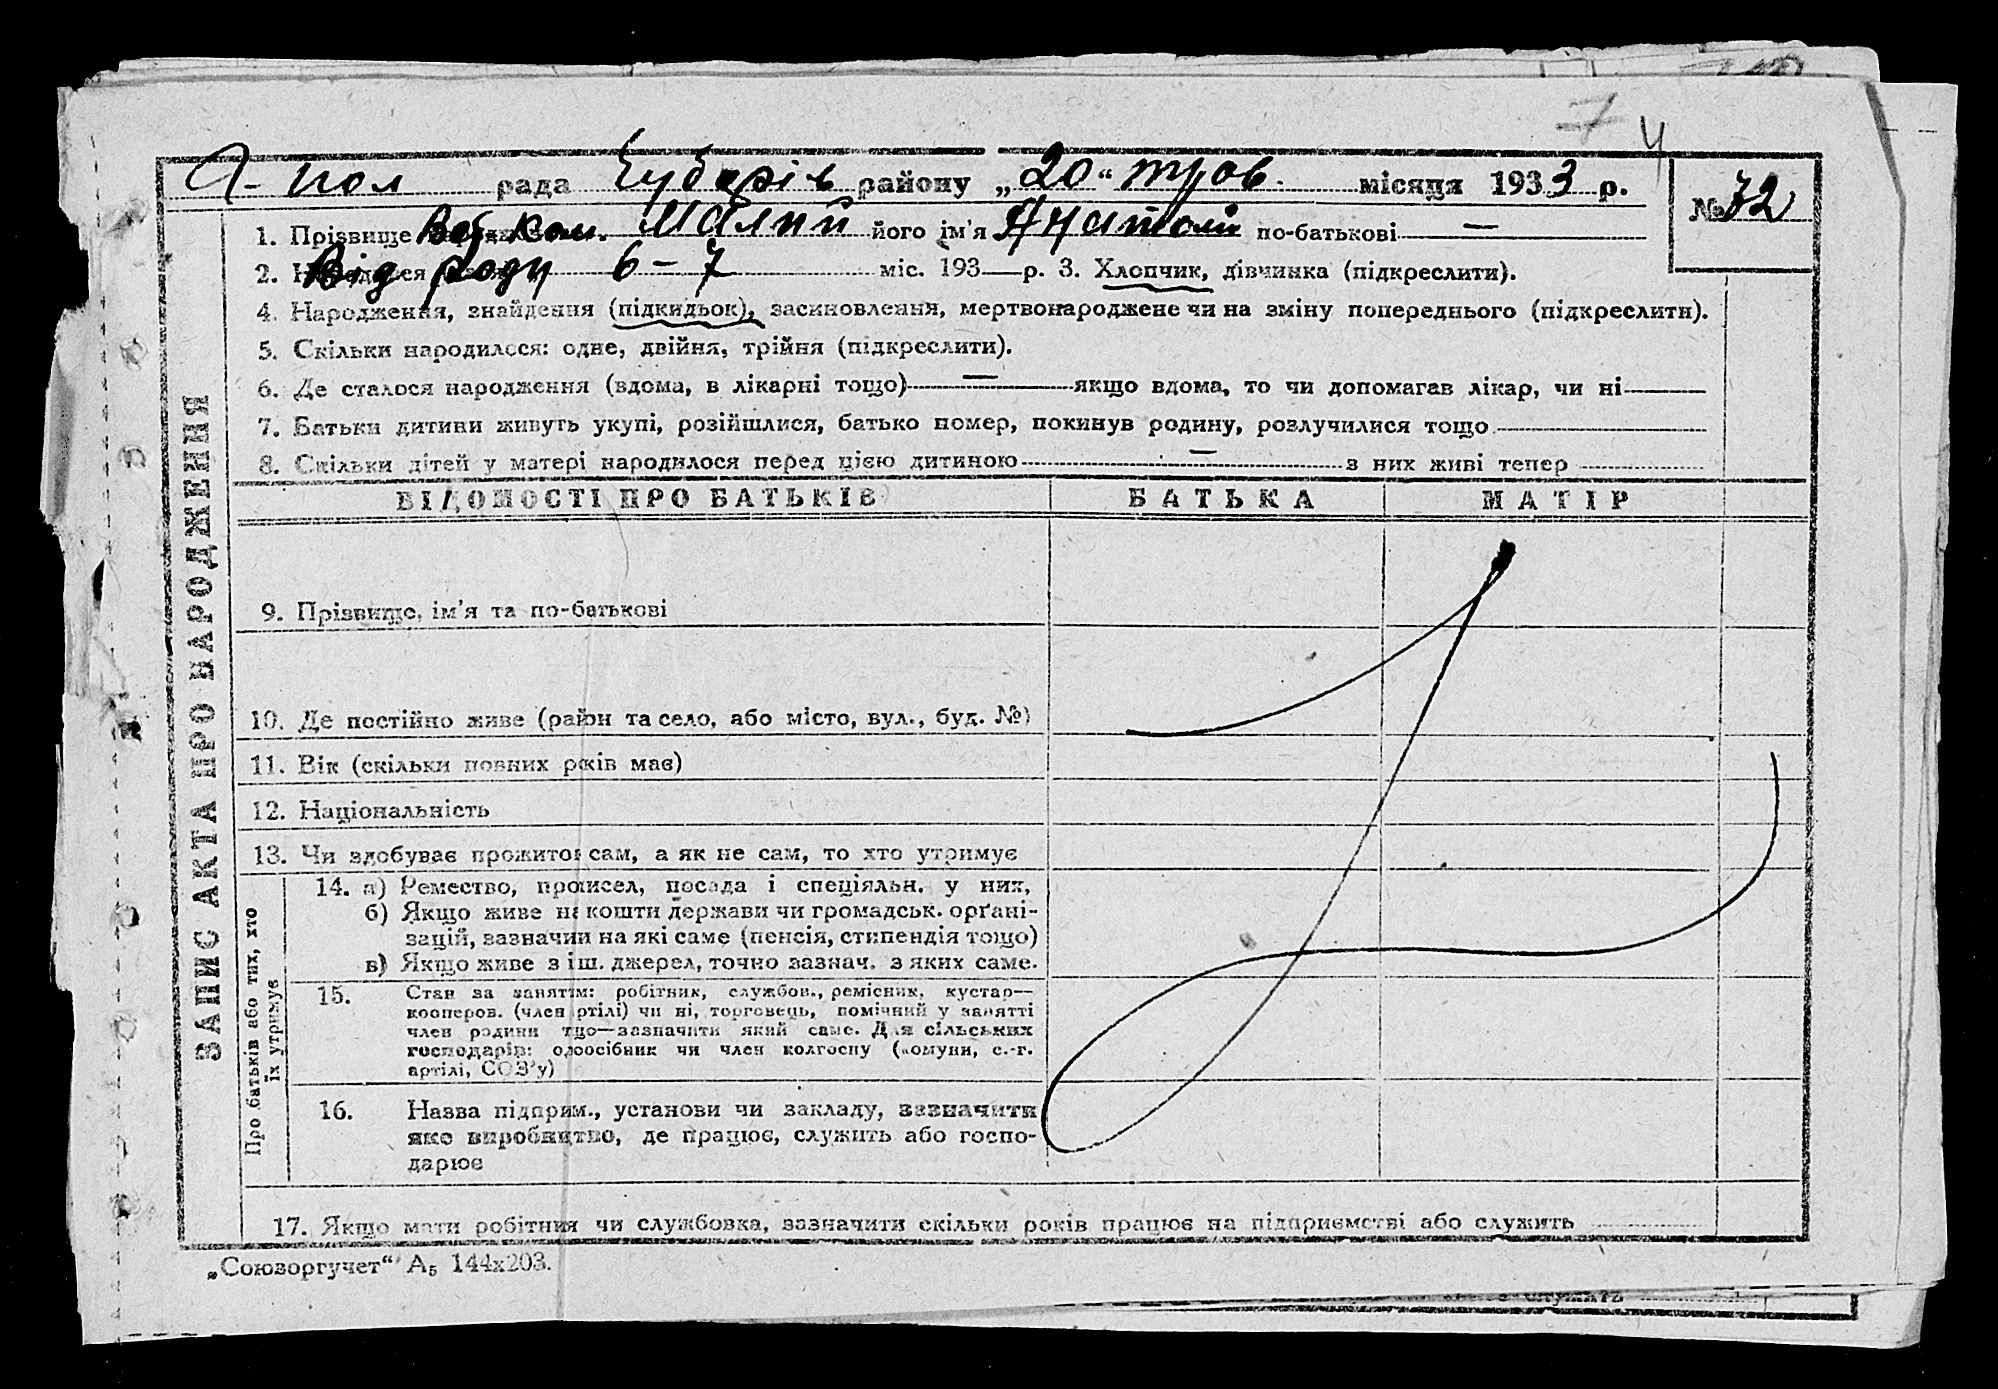 7 4
Г-пол рада Чубарів району „20“ трав. місяця 1933 р.
№ 72
1. Прізвище Малий його ім'я Анатолій по-батькові —
2. Від роду 6-7 міс. 193— р. 3. Хлопчик, дівчинка (підкреслити).
4. Народження, знайдення (підкидьок), засиновлення, мертвонароджене чи на зміну попереднього (підкреслити).
5. Скільки народилося: одне, двійня, трійня (підкреслити).
6. Де сталося народження (вдома, в лікарні тощо) — якщо вдома, то чи допомагав лікар, чи ні
7. Батьки дитини живуть укупі, розійшлися, батько помер, покинув родину, розлучилися тощо
8. Скільки дітей у матері народилося перед цією дитиною — з них живі тепер
ВІДОМОСТІ ПРО БАТЬКІВ БАТЬКА МАТІР
ЗАПИС АКТА ПРО НАРОДЖЕННЯ
9. Прізвище, ім'я та по-батькові
10. Де постійно живе (район та село, або місто, вул., буд. №)
11. Вік (скільки повних років має)
12. Національність
13. Чи здобуває прожиток сам, а як не сам, то хто утримує
Про батьків або тих, хто
їх утримує
14. а) Ремество, промисел, посада і спеціяльн. у них,
б) Якщо живе на кошти держави чи громадськ. орґані-
зацій, зазначии на які саме (пенсія, стипендія тощо)
в) Якщо живе з інш. джерел, точно зазнач. з яких саме.
15. Стан за заняттям: робітник, службов., ремісник, кустар—
кооперов. (член артілі) чи ні, торговець, помічний у занятті
член родини тощо—зазначити який саме. Для сільських
господарів: одноосібник чи член колгоспу (комуни, с.-г.
артілі, СОЗ'у)
16. Назва підприм., установи чи закладу, зазначити
яке виробництво, де працює, служить або госпо-
дарює
17. Якщо мати робітниця чи службовка, зазначити скільки років працює на підприємстві або служить
„Союзоргучет“ А₅ 144х203.